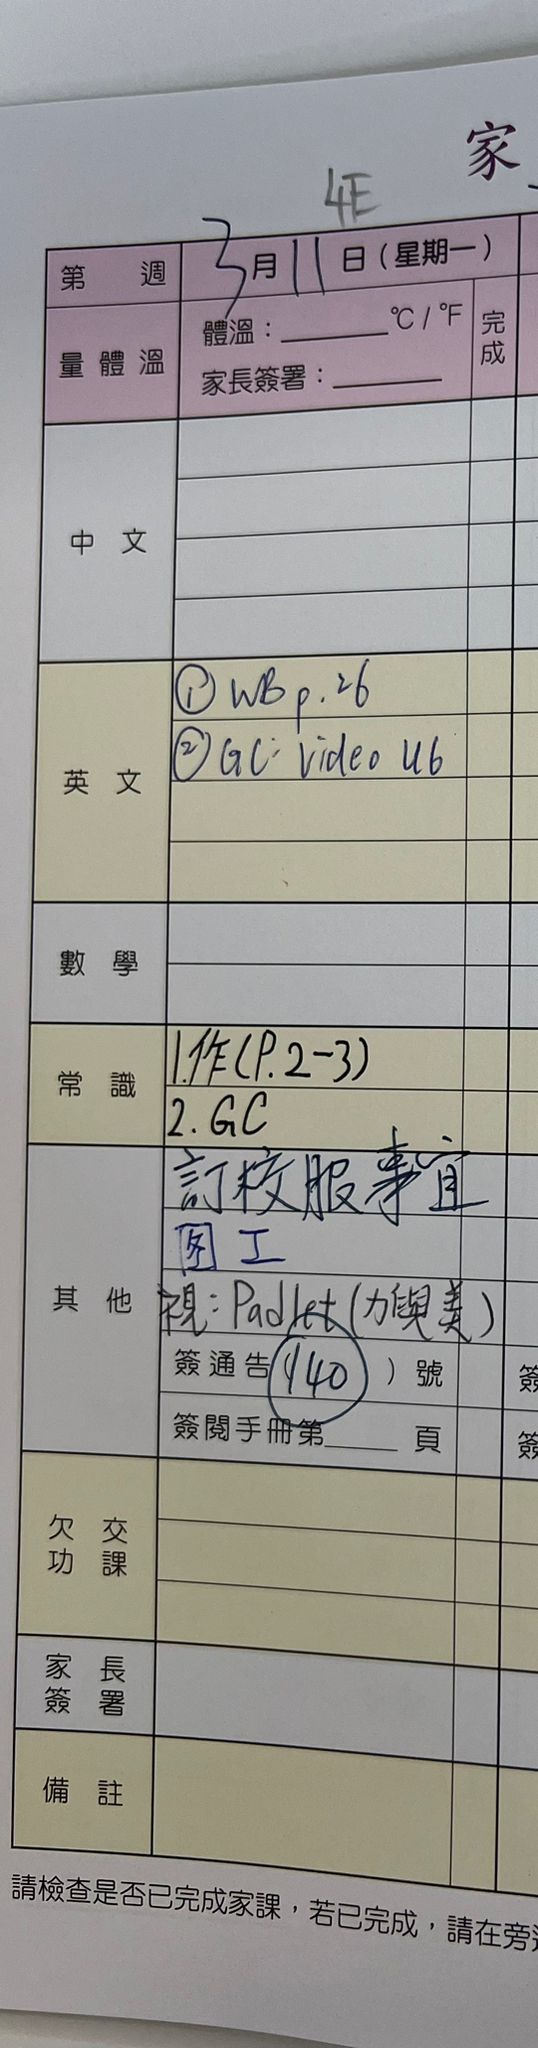 家
4E
第 週 3月11日(星期一)
量體溫 體溫:______°C/°F 完成
家長簽署:______
中文
英文 ① WB p.26
② GC: Video U6
數學
常識 1.作(P.2-3)
2. GC
其他 訂校服事宜
图工
視: Padlet(力與美)
簽通告(140)號 簽
簽閱手冊第____頁 簽
欠交功課
家長簽署
備註
請檢查是否已完成家課,若已完成,請在旁